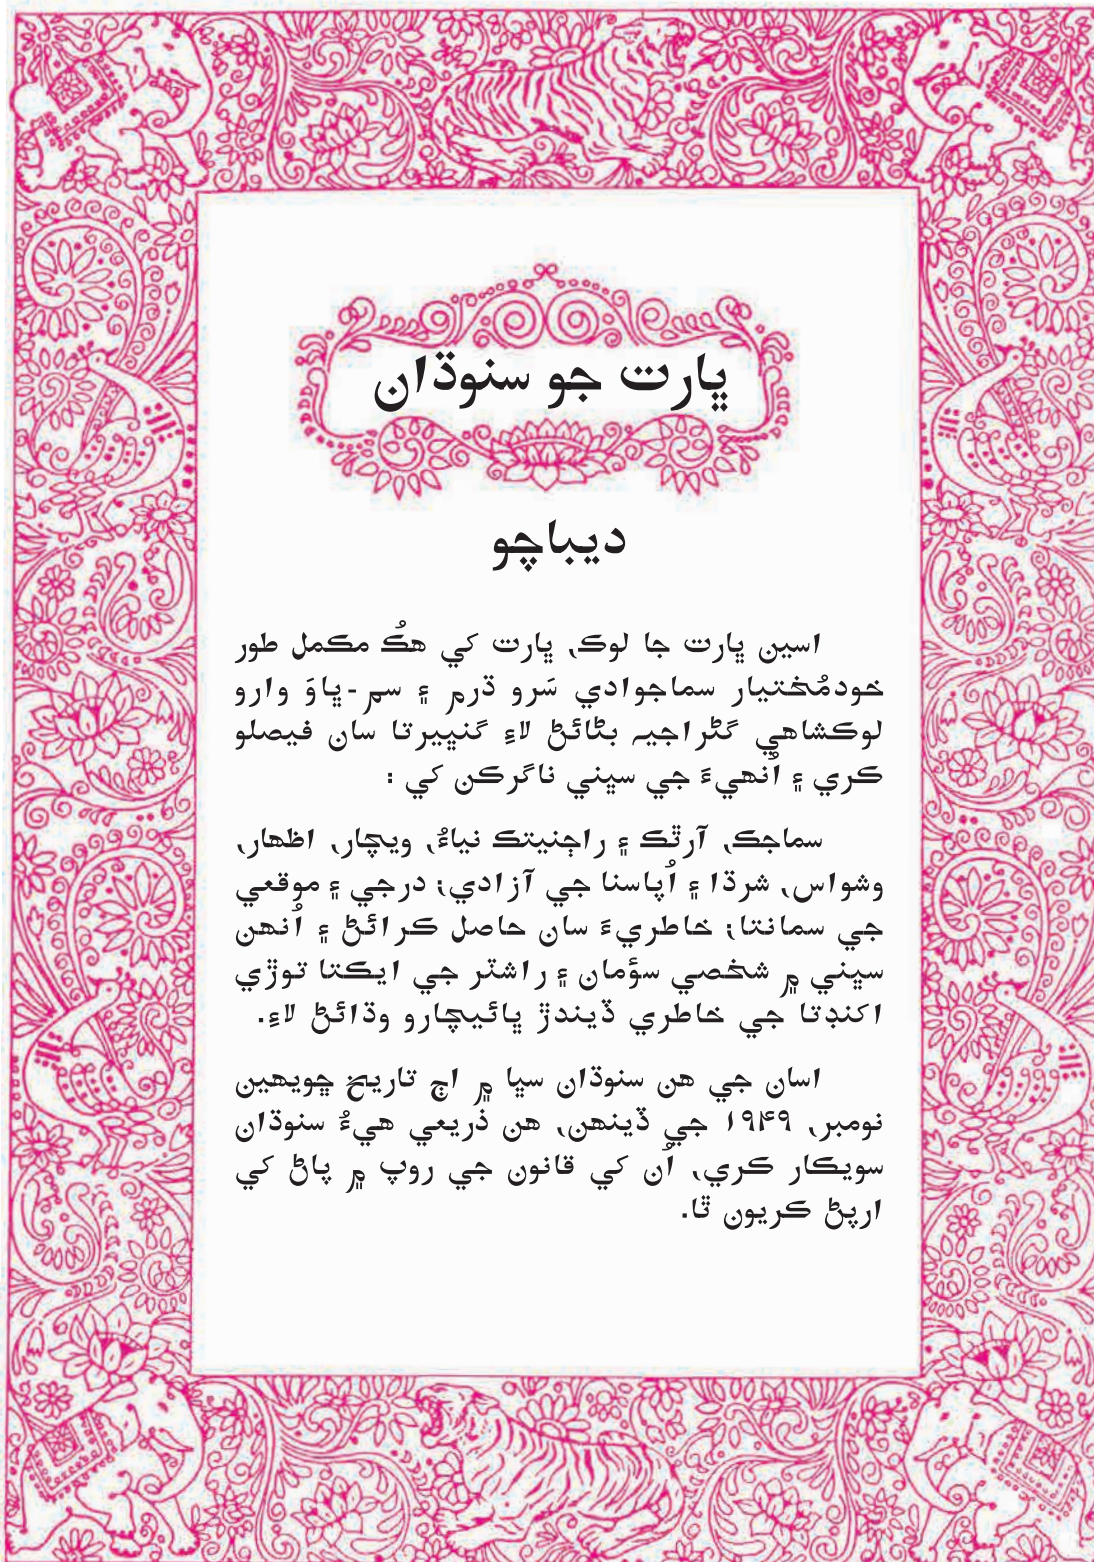 ڀارت جو سنوڌان
ديباچو
اسين ڀارت جا لوڪ، ڀارت کي هڪُ مڪمل طور
خودمُختيار سماجوادي سَرو ڌرم ۽ سم-ڀاوَ وارو
لوڪشاهي گڻراجيہ بڻائڻ لاءِ گنڀيرتا سان فيصلو
ڪري ۽ اُنهيءَ جي سڀني ناگرڪن کي :
سماجڪ، آرٿڪ ۽ راڄنيتڪ نياءُ، ويچار، اظهار،
وشواس، شرڌا ۽ اُپاسنا جي آزادي؛ درجي ۽ موقعي
جي سمانتا؛ خاطريءَ سان حاصل ڪرائڻ ۽ اُنهن
سڀني ۾ شخصي سؤمان ۽ راشٽر جي ايڪتا توڙي
اکنڊتا جي خاطري ڏيندڙ ڀائيچارو وڌائڻ لاءِ.
اسان جي هن سنوڌان سڀا ۾ اڄ تاريخ ڇويهين
نومبر، ۱۹۴۹ جي ڏينهن، هن ذريعي هيءُ سنوڌان
سويڪار ڪري، اُن کي قانون جي روپ ۾ پاڻ کي
ارپڻ ڪريون ٿا.